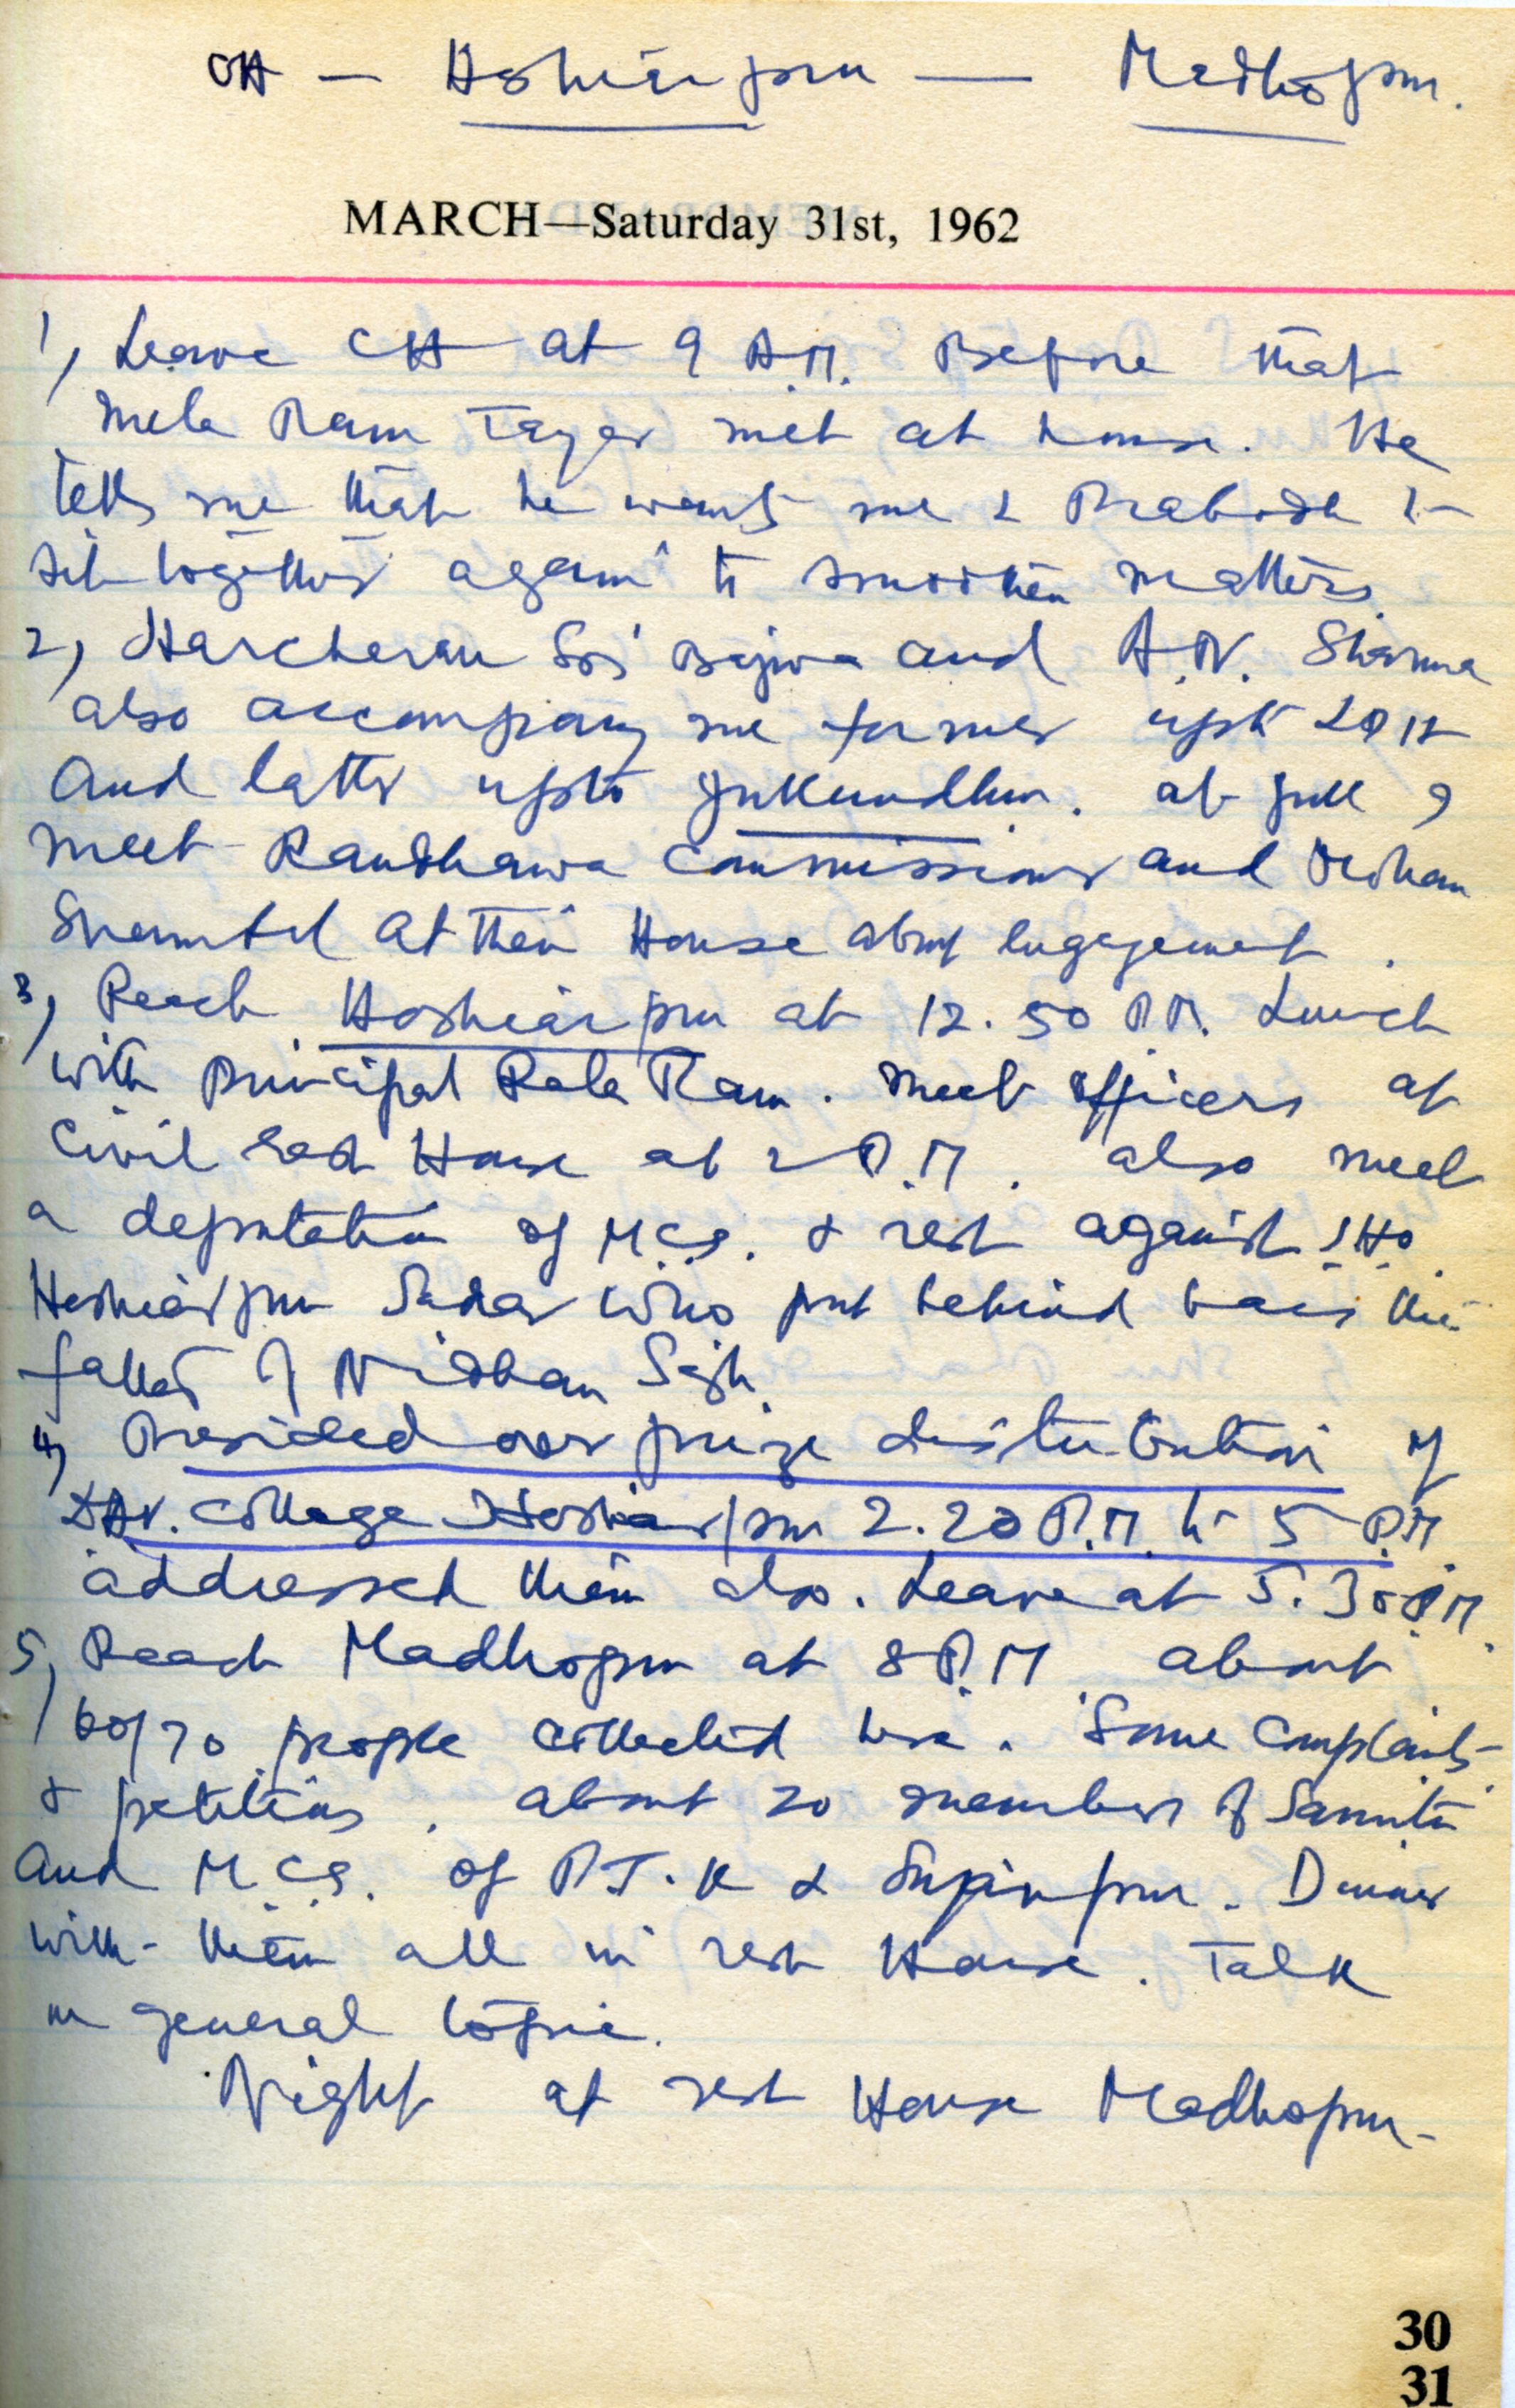 CH — Hoshiarpur — Madhopur.
MARCH—Saturday 31st, 1962
1, Leave CH at 9 A.M. Before that
Mela Ram Tayer met at house. He
tells me that he wants me & Prabodh to
sit together again to smoothen matters.
2, Harcheran Bajwa and A.N. Sharma
also accompany me former upto
and latter upto Jullundhur. at Jull I
meet Randhawa Commissioner and Mohan
at their House about engagement.
3, Reach Hoshiarpur at 12.50 P.M. Lunch
with Principal Rala Ram. Meet officers at
Civil Rest House at 2 P.M. also meet
a deputation of M.C.s. & rest against SHO
Hoshiarpur Sadar who put behind bars the
father of Nidhan Singh.
4, Presided over prize distribution of
DAV. College Hoshiarpur 2.20 P.M. to 5 P.M.
addressed them also. Leave at 5.30 P.M.
5, Reach Madhopur at 8 P.M. about
60/70 people collected here. Some Complaints
& petitions. about 20 members of Samiti
and M.C.s. of P.T.K & Sujanpur. Dinner
with them all in rest House. Talk
on general topic.
Night at rest House Madhopur.
30
31